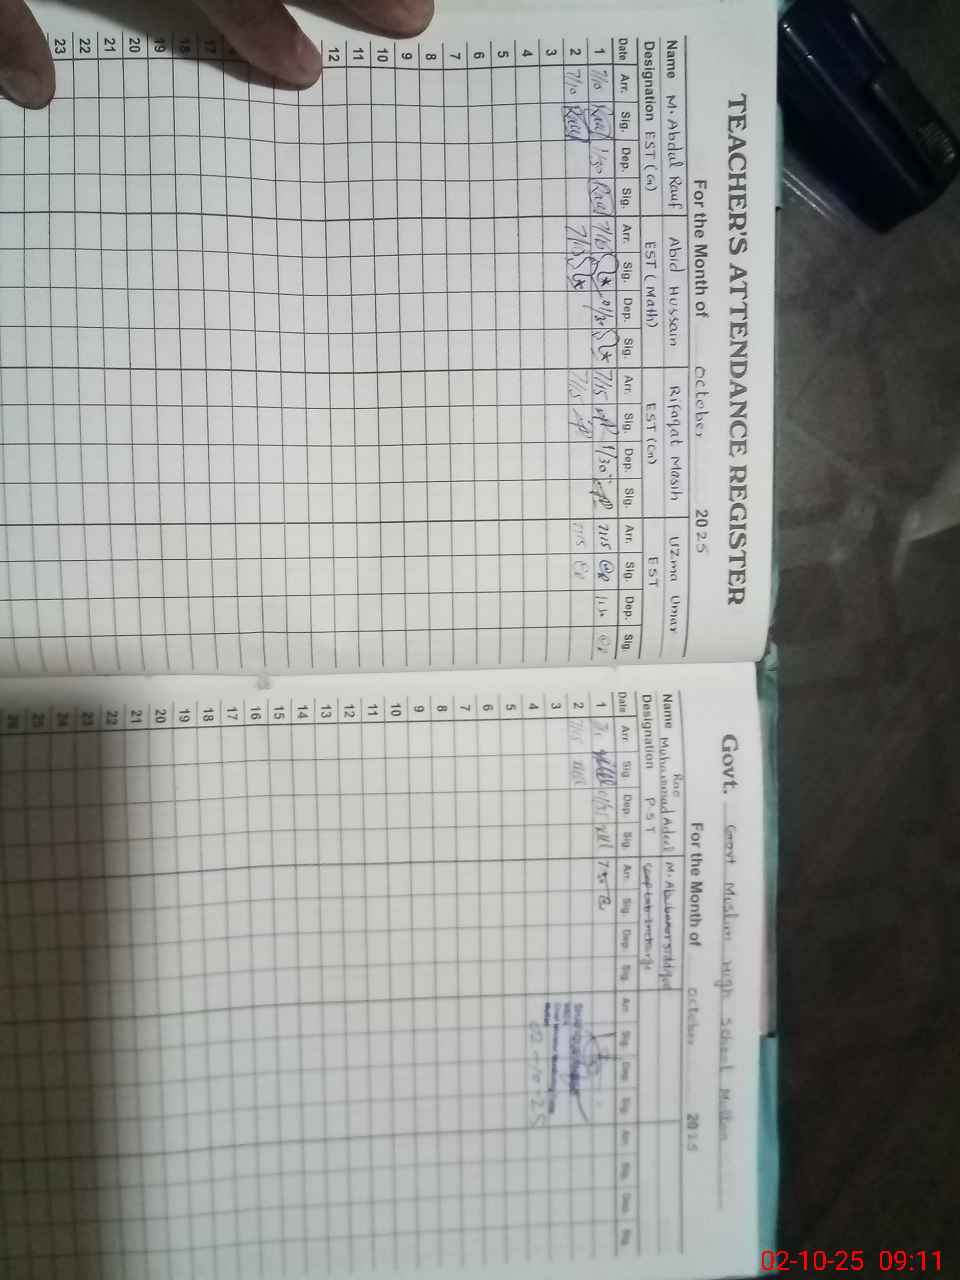 TEACHER'S ATTENDANCE REGISTER
For the Month of October 2025
Name M. Abdul Rauf Abid Hussain Rifaqat Masih Uzma Umar
Designation EST (Gn) EST (Math) EST (Gn) EST
Date Arr. Sig. Dep. Sig. Arr. Sig. Dep. Sig. Arr. Sig. Dep. Sig. Arr. Sig. Dep. Sig.
1 7/10 Rauf 1/30 Rauf 7/10 1/30 7/15 1/30 7/15
2 7/10 Rauf 7/10 7/15 7/15
3
4
5
6
7
8
9
10
11
12
17
18
19
20
21
22
23
Govt. Govt Muslim High School
For the Month of October 2025
Name Rao Muhammad Adeel M. Abubakar Siddique
Designation PST Comp Lab Incharge
Date Arr. Sig. Dep. Sig. Arr. Sig. Dep. Sig. Arr. Sig. Dep. Sig. Arr. Sig. Dep. Sig.
1
2 7/15
3
4 02-10-25
5
6
7
8
9
10
11
12
13
14
15
16
17
18
19
20
21
22
23
24
25
26
02-10-25 09:11